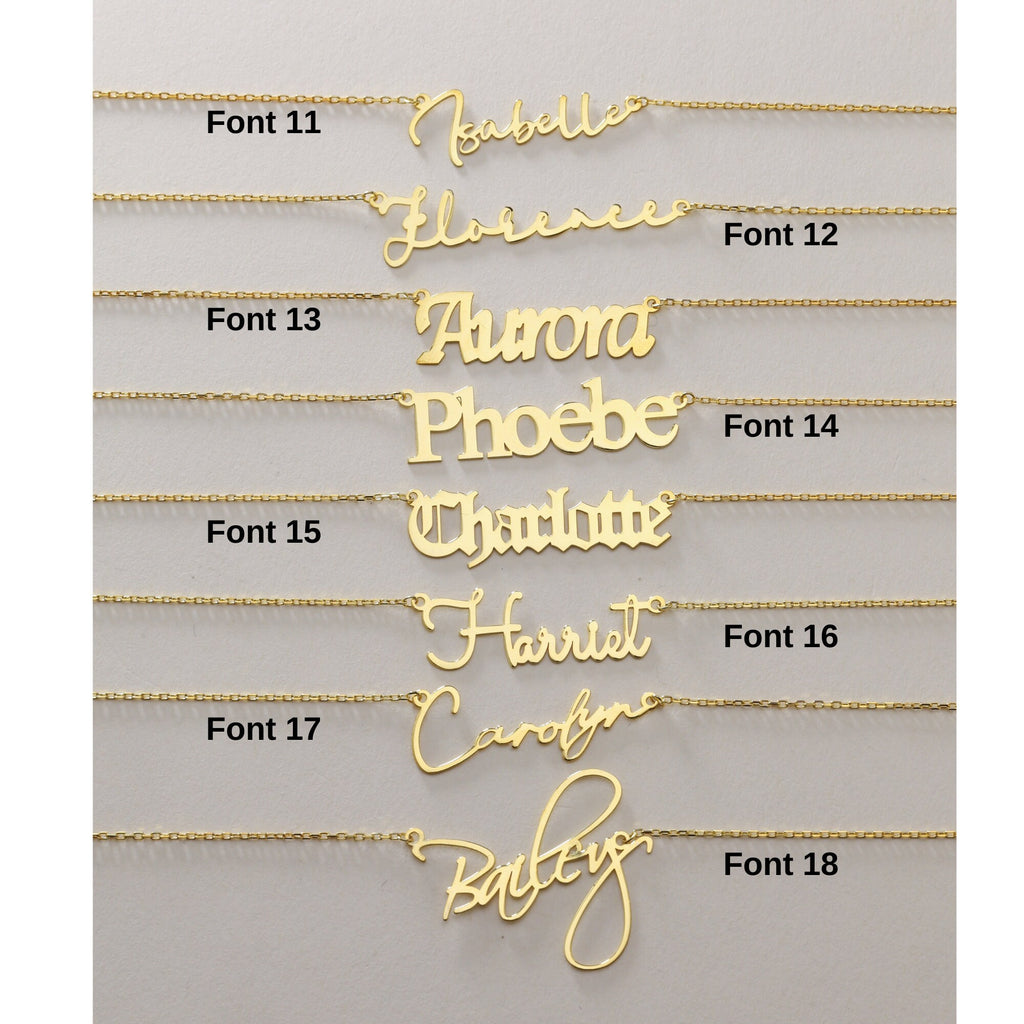 Font 11 Isabelle
Florence Font 12
Font 13 Aurora
Phoebe Font 14
Font 15 Charlotte
Harriet Font 16
Font 17 Carolyn
Bailey Font 18